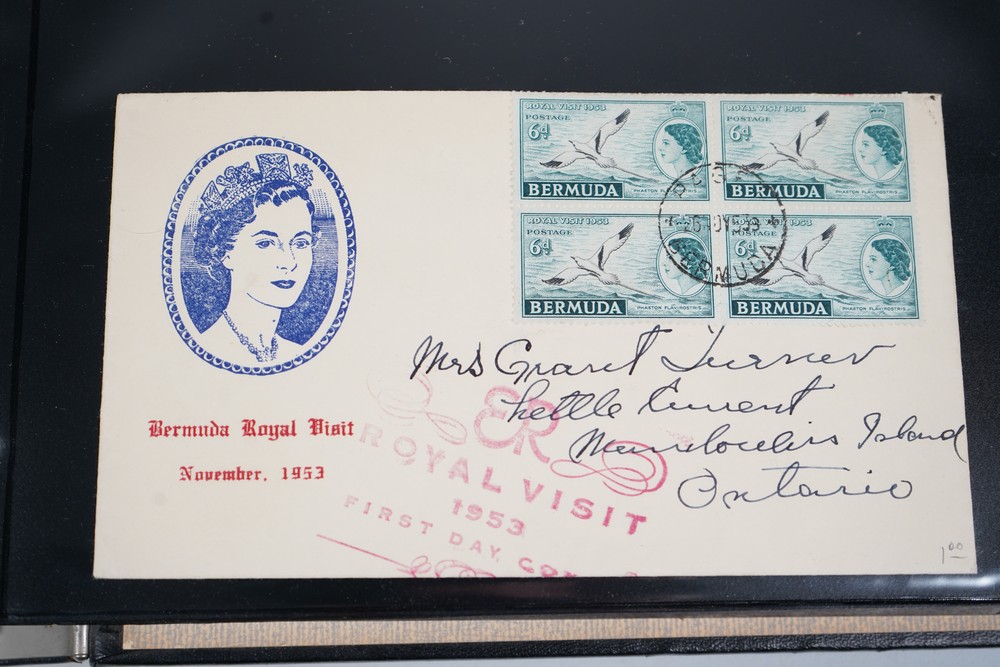 ROYAL VISIT 1953
POSTAGE
6d
PHAETON FLAVIROSTRIS
BERMUDA
ROYAL VISIT 1953
POSTAGE
6d
PHAETON FLAVIROSTRIS
BERMUDA
ROYAL VISIT 1953
POSTAGE
6d
PHAETON FLAVIROSTRIS
BERMUDA
1953
POSTAGE
6d
PHAETON FLAVIROSTRIS
BERMUDA
26 NOV 53
BERMUDA
Mrs Grant Turner
Kettle Current
Manitoulin Island
Ontario
Bermuda Royal Visit
November, 1953
ER
ROYAL VISIT
1953
FIRST DAY
1.00